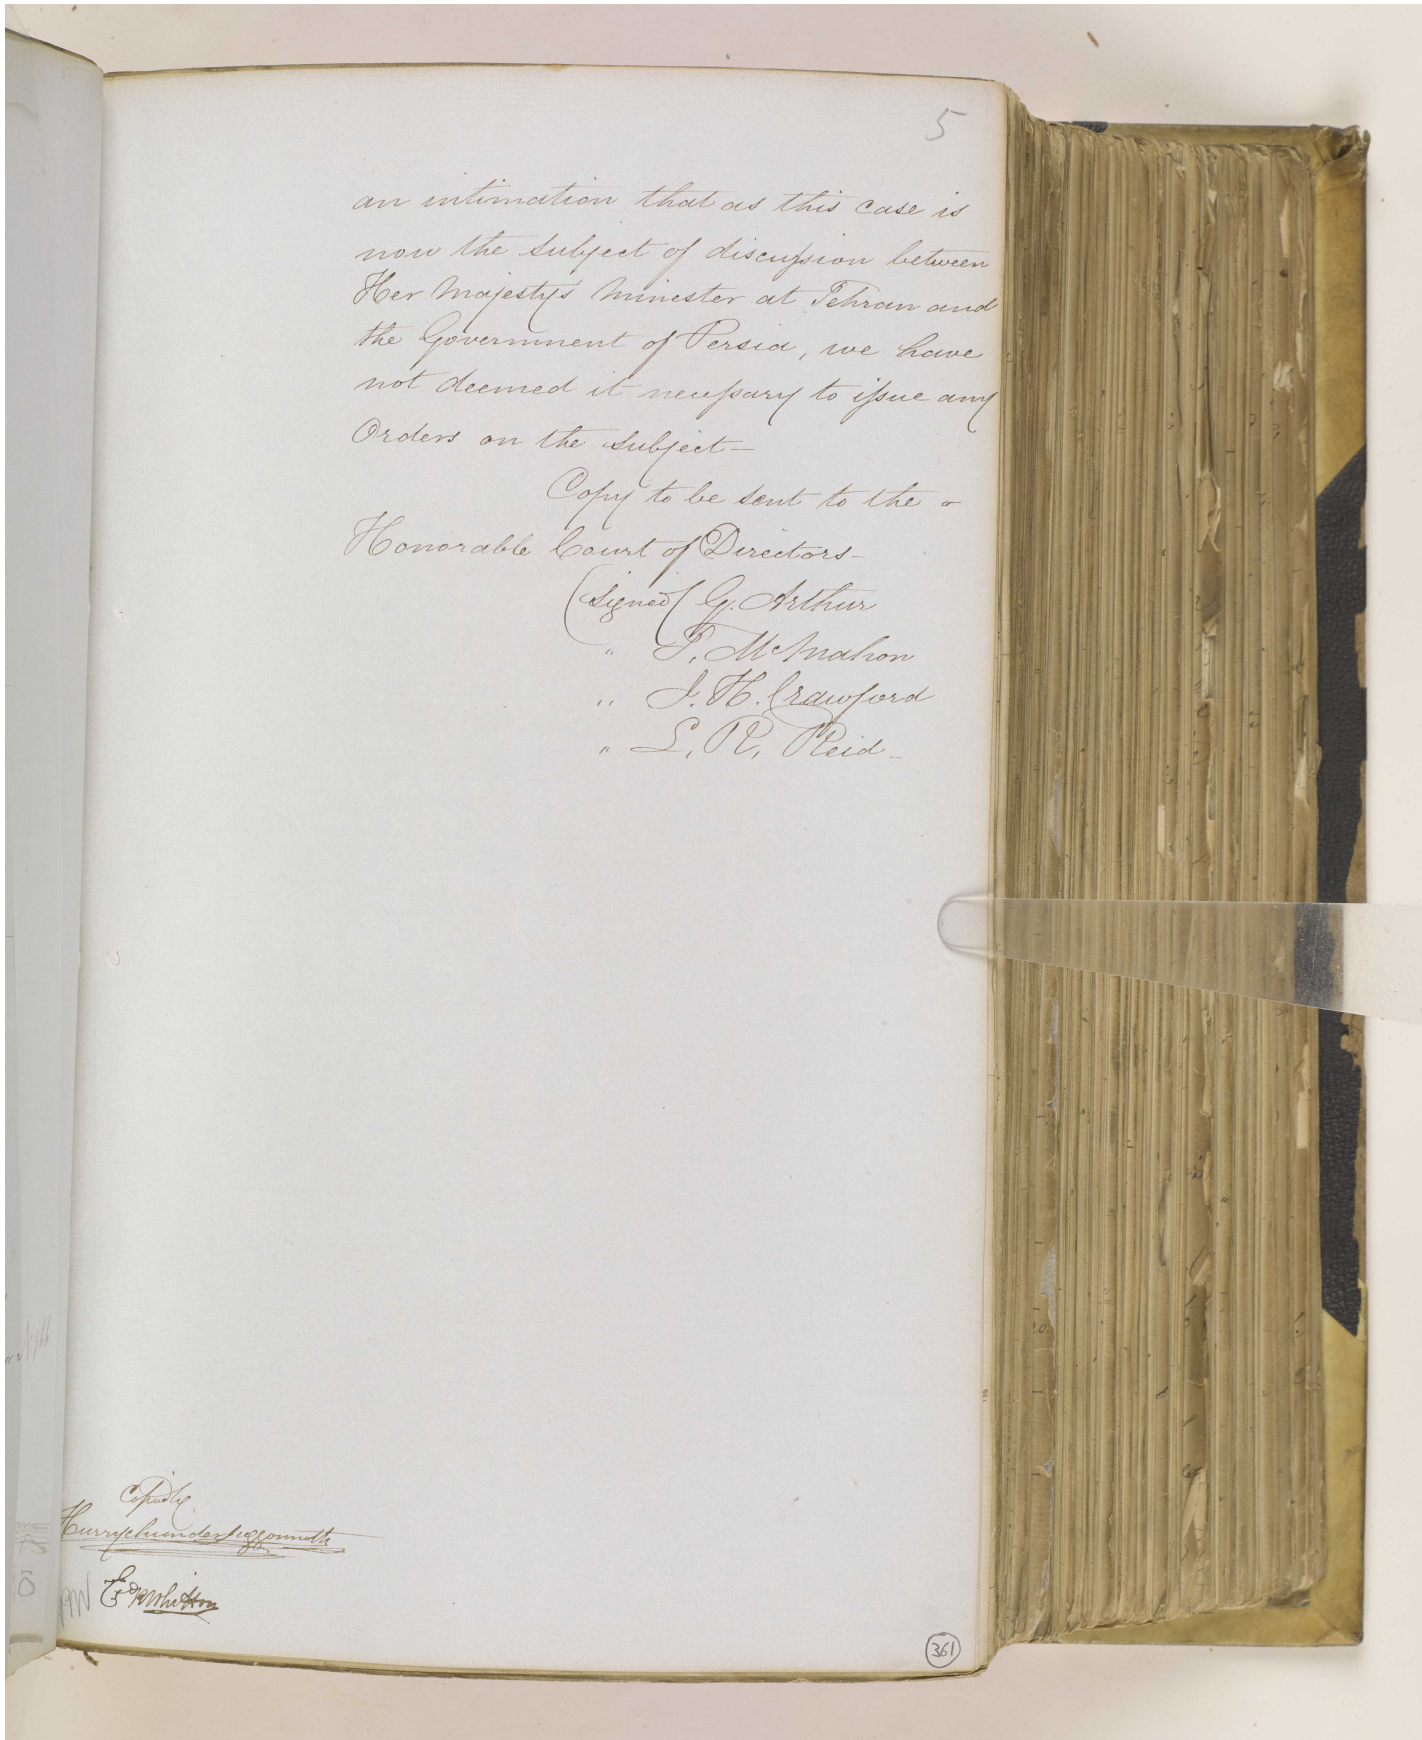 5
an intimation that as this case is
now the subject of discussion between
Her Majesty's Minester at Tehran and
the Government of Persia, we have
not deemed it necessary to issue any
Orders on the subject—
Copy to be sent to the -
Honorable Court of Directors-
(Signed) G. Arthur
" T. McMahon
" J. H. Crawford
" L. R. Reid-
Copied by
Hurrychunder Juggonnath
Exd
361